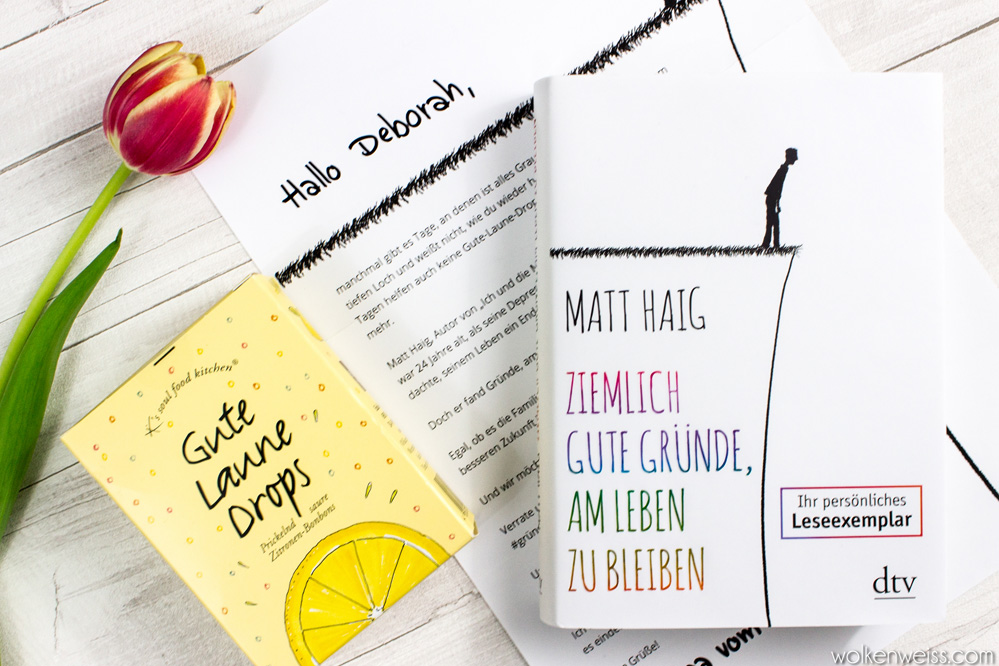 Hallo Deborah,
manchmal gibt es Tage, an denen ist alles Grau
tiefen Loch und weißt nicht, wie du wieder h
Tagen helfen auch keine Gute-Laune-Drop
mehr.
Matt Haig, Autor von „Ich und die M
war 24 Jahre alt, als seine Depre
dachte, seinem Leben ein End
Doch er fand Gründe, am
Egal, ob es die Famili
besseren Zukunft,
Und wir möch
Verrate u
#grün
U
Ich
es einde
Grüße!
na vom
K's soul food kitchen®
Gute
Laune
Drops
Prickelnd saure
Zitronen-Bonbons
MATT HAIG
ZIEMLICH
GUTE GRÜNDE,
AM LEBEN
ZU BLEIBEN
Ihr persönliches
Leseexemplar
dtv
wolkenweiss.com